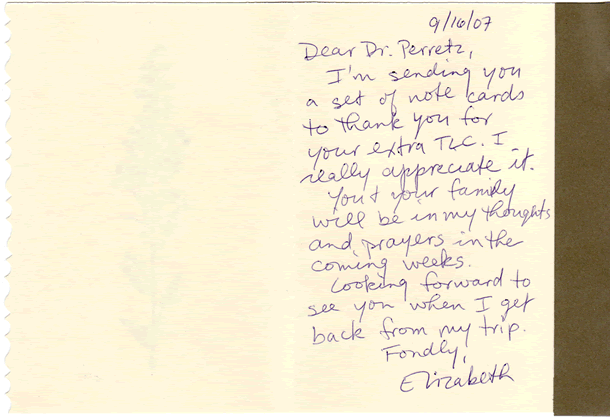 9/16/07
Dear Dr. Perretz,
I'm sending you
a set of note cards
to thank you for
your extra TLC. I
really appreciate it.
You & your family
will be in my thoughts
and prayers in the
coming weeks.
Looking forward to
see you when I get
back from my trip.
Fondly,
Elizabeth